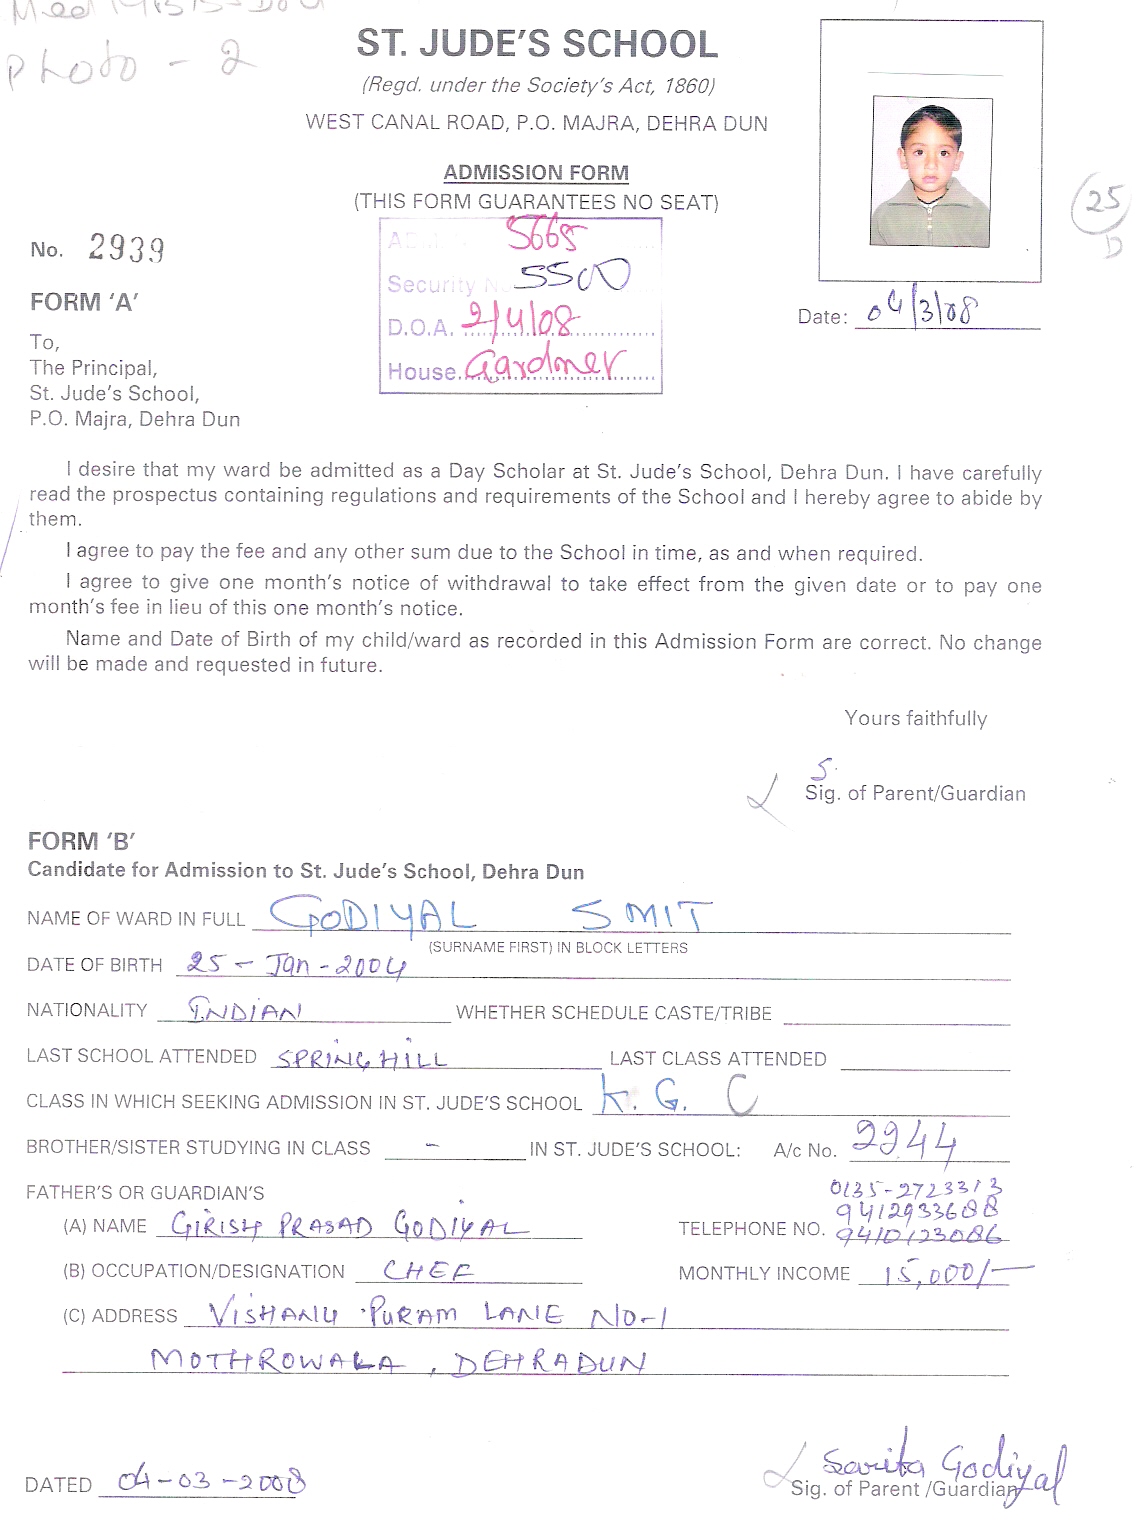 Photo - 2
ST. JUDE'S SCHOOL
(Regd. under the Society's Act, 1860)
WEST CANAL ROAD, P.O. MAJRA, DEHRA DUN
ADMISSION FORM
(THIS FORM GUARANTEES NO SEAT)
25
D
No. 2939
5665
Security N 5500
D.O.A. 2/4/08
House. Gardner
Date: 04/3/08
FORM 'A'
To,
The Principal,
St. Jude's School,
P.O. Majra, Dehra Dun
I desire that my ward be admitted as a Day Scholar at St. Jude's School, Dehra Dun. I have carefully
read the prospectus containing regulations and requirements of the School and I hereby agree to abide by
them.
I agree to pay the fee and any other sum due to the School in time, as and when required.
I agree to give one month's notice of withdrawal to take effect from the given date or to pay one
month's fee in lieu of this one month's notice.
Name and Date of Birth of my child/ward as recorded in this Admission Form are correct. No change
will be made and requested in future.
Yours faithfully
S.
Sig. of Parent/Guardian
FORM 'B'
Candidate for Admission to St. Jude's School, Dehra Dun
NAME OF WARD IN FULL GODIYAL SMIT
(SURNAME FIRST) IN BLOCK LETTERS
DATE OF BIRTH 25 - Jan - 2004
NATIONALITY INDIAN WHETHER SCHEDULE CASTE/TRIBE
LAST SCHOOL ATTENDED SPRING HILL LAST CLASS ATTENDED
CLASS IN WHICH SEEKING ADMISSION IN ST. JUDE'S SCHOOL K. G. C
BROTHER/SISTER STUDYING IN CLASS - IN ST. JUDE'S SCHOOL: A/c No. 2944
FATHER'S OR GUARDIAN'S 0135-2723313
9412933688
(A) NAME GIRISH PRASAD GODIYAL TELEPHONE NO. 9410123086
(B) OCCUPATION/DESIGNATION CHEF MONTHLY INCOME 15,000/-
(C) ADDRESS VISHANU PURAM LANE NO-1
MOTHROWALA, DEHRADUN
DATED 04-03-2008 Savita Godiyal
Sig. of Parent /Guardian